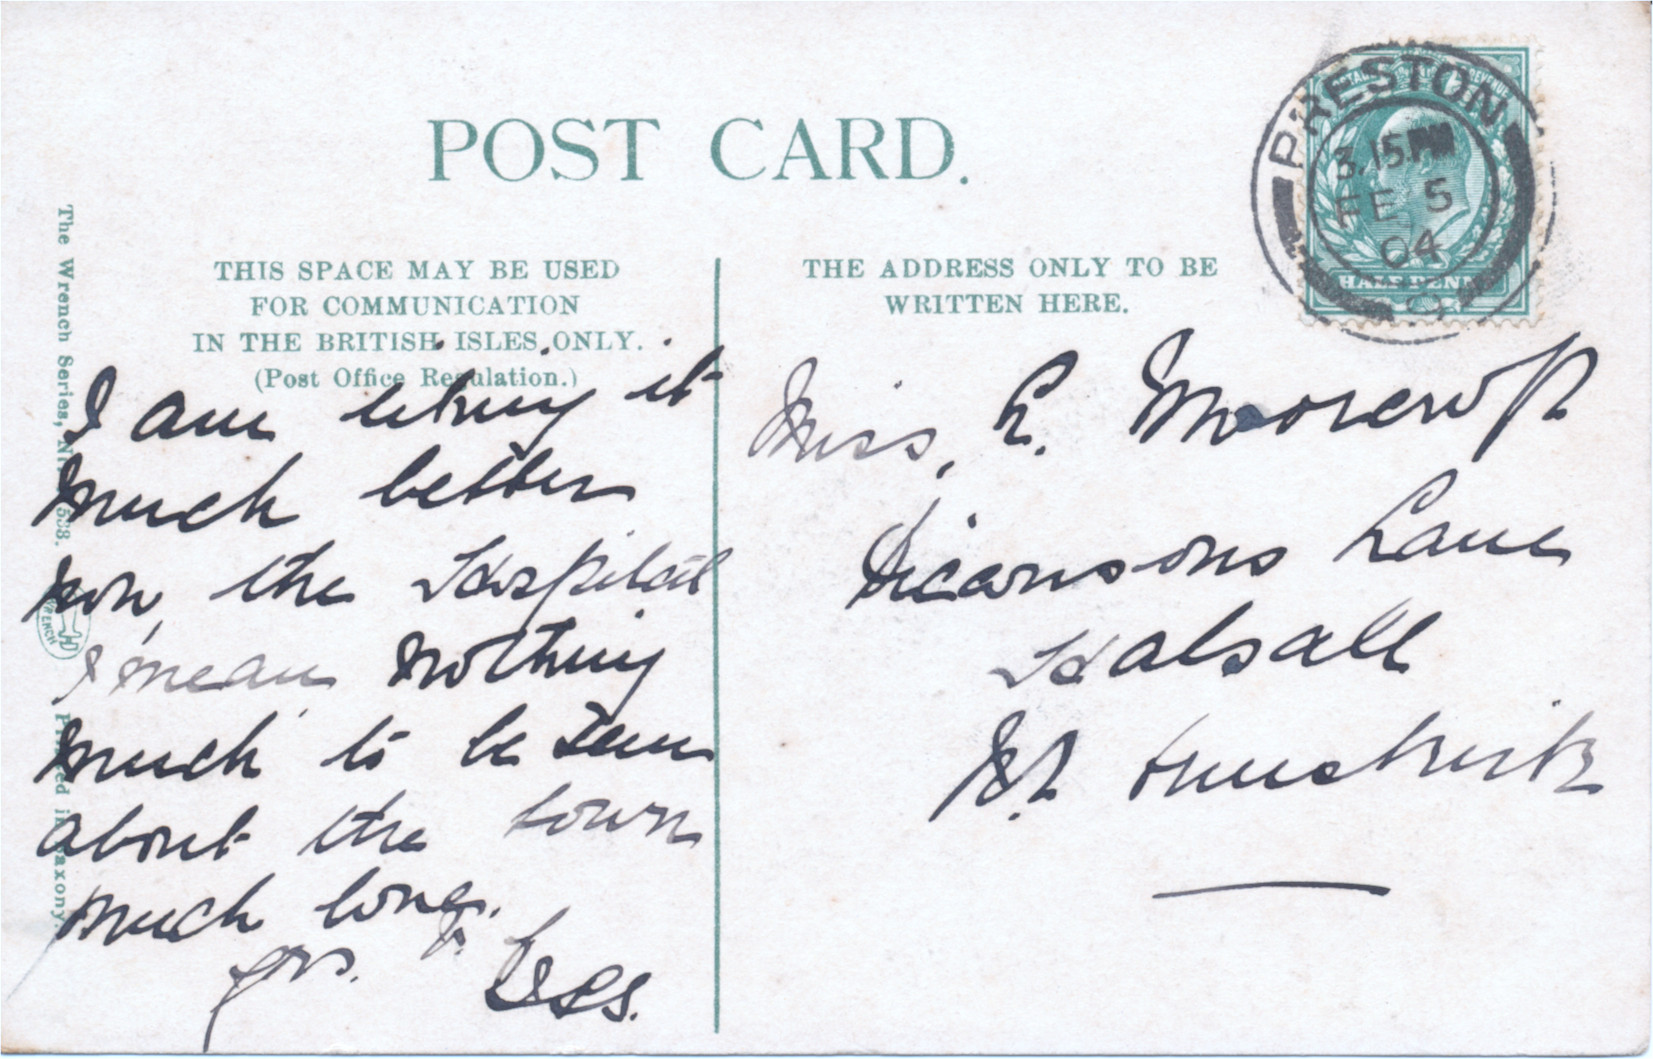 POST CARD.
PRESTON
3.15 PM
FE 5
04
HALFPENNY
THIS SPACE MAY BE USED
FOR COMMUNICATION
IN THE BRITISH ISLES ONLY.
(Post Office Regulation.)
THE ADDRESS ONLY TO BE
WRITTEN HERE.
The Wrench Series, No. 538.
WRENCH
Printed in Saxony.
I am liking it
much better
now, the Hospital
I mean, nothing
much to be seen
about the town
much love.
yrs.
Miss, L. Moorcroft
Dicconsons Lane
Halsall
Nr Ormskirk